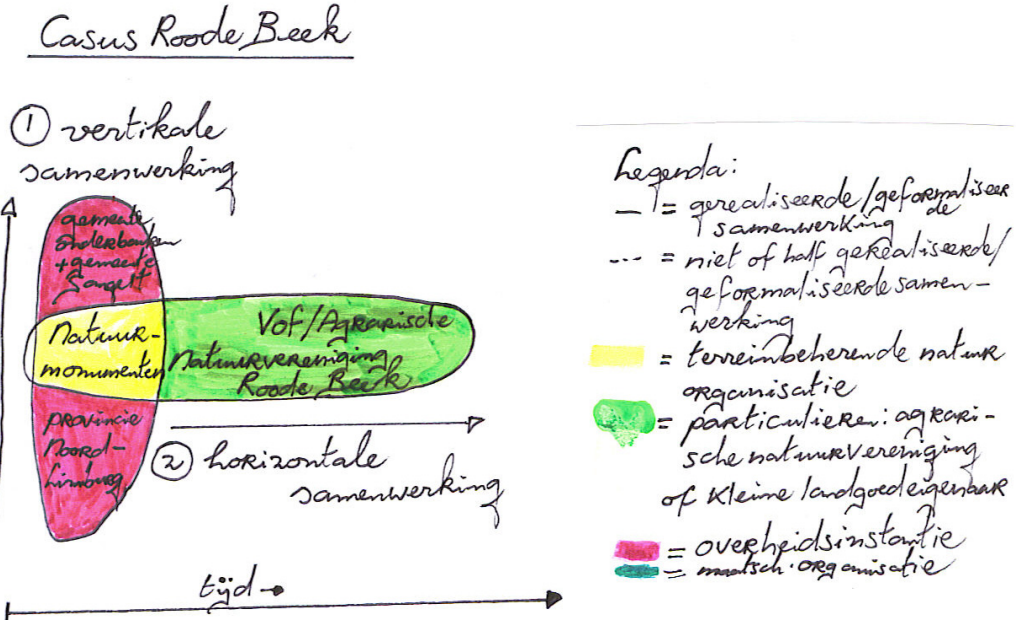 Casus Roode Beek
① vertikale
samenwerking
gemeente
onderbanken
+ gemeente
Gangelt
Natuur-
monumenten
Vof/Agrarische
Natuurvereniging
Roode Beek
provincie
Noord-
Limburg
② horizontale
samenwerking
tijd →
Legenda:
— = gerealiseerde/geformaliseer
de
samenwerking
--- = niet of half gerealiseerde/
geformaliseerde samen-
werking
= terreinbeherende natuur
organisatie
= particulieren: agrari-
sche natuurvereniging
of kleine landgoedeigenaar
= overheidsinstantie
= maatsch. organisatie